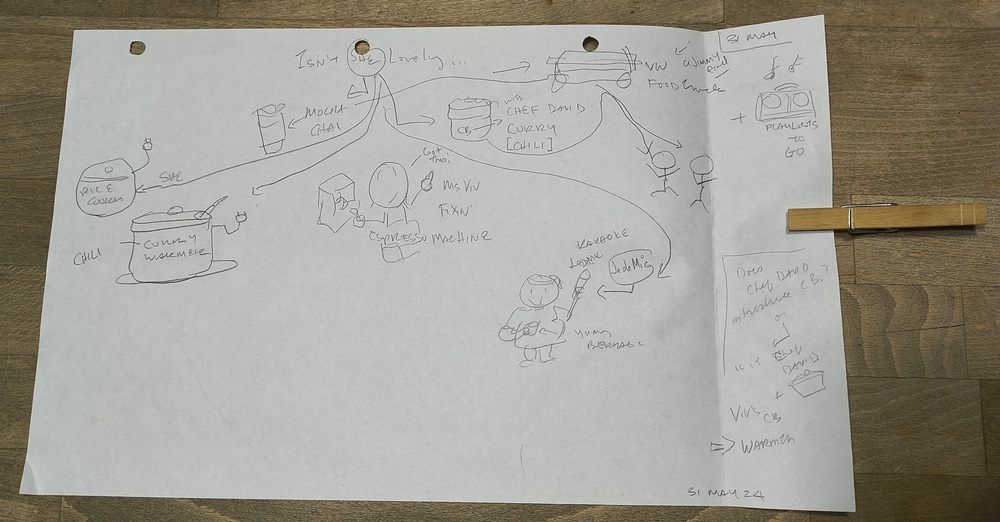 31 MAY
ISN'T SHE Lovely ...
VW
FOOD truck
MOCHA
CHAI
with
CHEF DAVID
CURRY
[CHILI]
CB
+
PLAYLISTS
TO
GO
SHE
RICE
COOKER
Ms Viv
FIXIN'
ESPRESSO MACHINE
CHILI
CURRY
WARMER
KARAOKE
JadeMis
yummy
Does
Chef DAVID
introduce CBs?
or
is it Chef
DAVID
+
VIV'S CB
⇒ WARMER
31 MAY 24